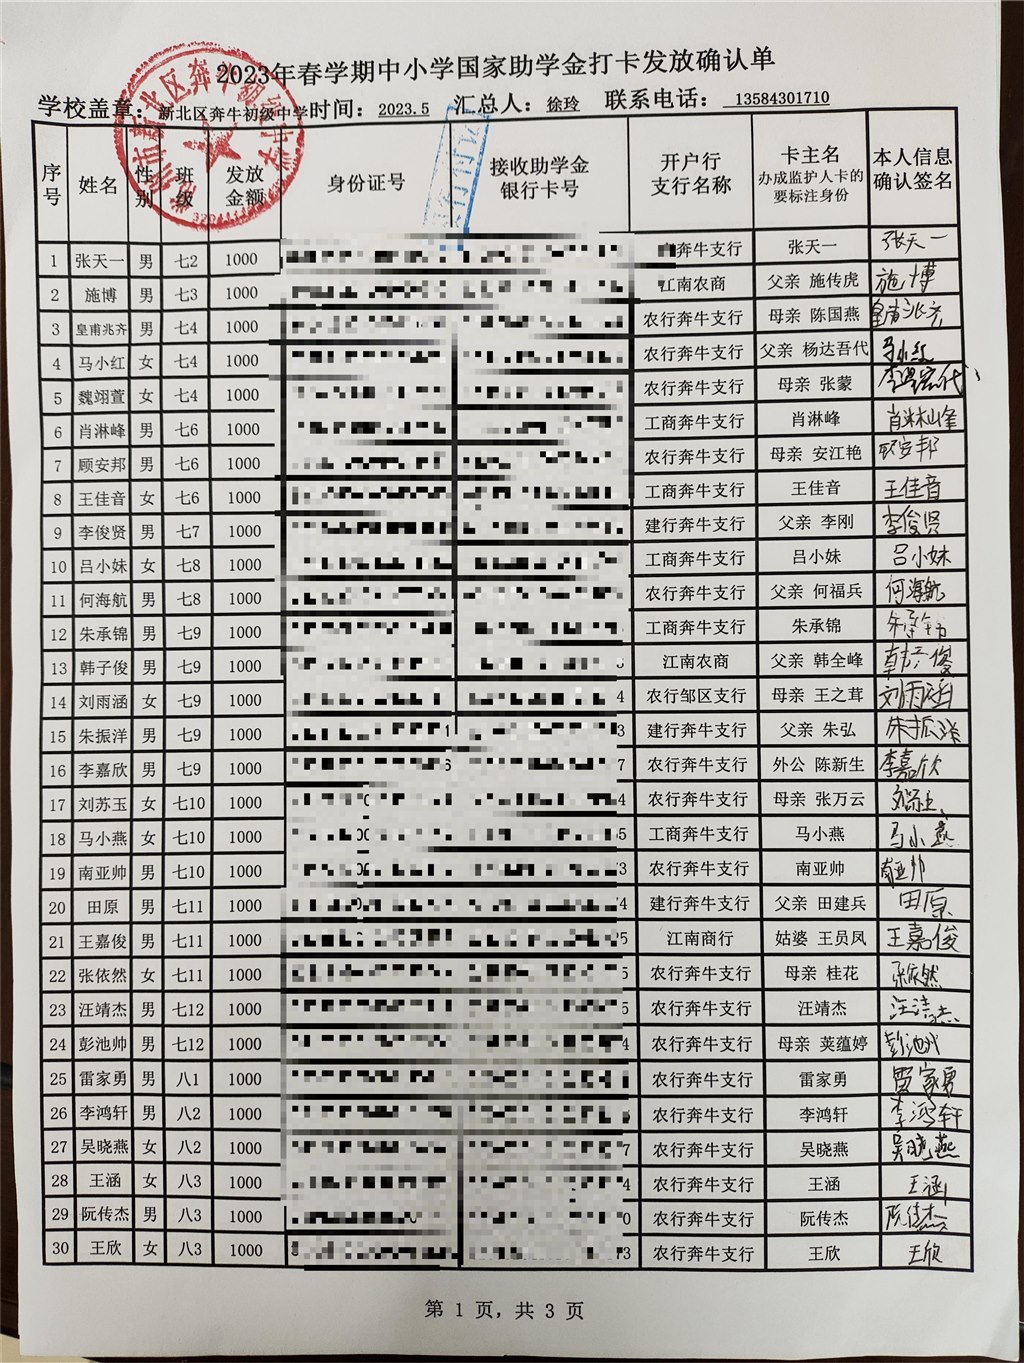 2023年春学期中小学国家助学金打卡发放确认单
学校盖章：新北区奔牛初级中学 时间： 2023.5 汇总人： 徐玲 联系电话： 13584301710
序号 姓名 性别 班级 发放金额 身份证号 接收助学金银行卡号 开户行支行名称 卡主名 办成监护人卡的要标注身份 本人信息确认签名
1 张天一 男 七2 1000 奔牛支行 张天一 张天一
2 施博 男 七3 1000 江南农商 父亲 施传虎 施博
3 皇甫兆齐 男 七4 1000 农行奔牛支行 母亲 陈国燕 皇甫兆齐
4 马小红 女 七4 1000 农行奔牛支行 父亲 杨达吾代 马小红
5 魏翊萱 女 七4 1000 农行奔牛支行 母亲 张蒙
6 肖淋峰 男 七6 1000 工商奔牛支行 肖淋峰 肖淋峰
7 顾安邦 男 七6 1000 农行奔牛支行 母亲 安江艳 顾安邦
8 王佳音 女 七6 1000 工商奔牛支行 王佳音 王佳音
9 李俊贤 男 七7 1000 建行奔牛支行 父亲 李刚 李俊贤
10 吕小妹 女 七8 1000 工商奔牛支行 吕小妹 吕小妹
11 何海航 男 七8 1000 农行奔牛支行 父亲 何福兵 何海航
12 朱承锦 男 七9 1000 工商奔牛支行 朱承锦 朱承锦
13 韩子俊 男 七9 1000 江南农商 父亲 韩全峰 韩子俊
14 刘雨涵 女 七9 1000 4 农行邹区支行 母亲 王之茸 刘雨涵
15 朱振洋 男 七9 1000 1 3 建行奔牛支行 父亲 朱弘 朱振洋
16 李嘉欣 男 七9 1000 6 7 农行奔牛支行 外公 陈新生 李嘉欣
17 刘苏玉 女 七10 1000 4 农行奔牛支行 母亲 张万云 刘苏玉
18 马小燕 女 七10 1000 5 工商奔牛支行 马小燕 马小燕
19 南亚帅 男 七10 1000 3 农行奔牛支行 南亚帅 南亚帅
20 田原 男 七11 1000 4 建行奔牛支行 父亲 田建兵 田原
21 王嘉俊 男 七11 1000 25 江南商行 姑婆 王员凤 王嘉俊
22 张依然 女 七11 1000 5 农行奔牛支行 母亲 桂花 张依然
23 汪靖杰 男 七12 1000 5 农行奔牛支行 汪靖杰 汪靖杰
24 彭池帅 男 七12 1000 4 农行奔牛支行 母亲 荚蕴婷 彭池帅
25 雷家勇 男 八1 1000 农行奔牛支行 雷家勇 雷家勇
26 李鸿轩 男 八2 1000 农行奔牛支行 李鸿轩 李鸿轩
27 吴晓燕 女 八2 1000 7 农行奔牛支行 吴晓燕 吴晓燕
28 王涵 女 八3 1000 4 农行奔牛支行 王涵 王涵
29 阮传杰 男 八3 1000 0 农行奔牛支行 阮传杰 阮传杰
30 王欣 女 八3 1000 3 73 农行奔牛支行 王欣 王欣
第 1 页，共 3 页